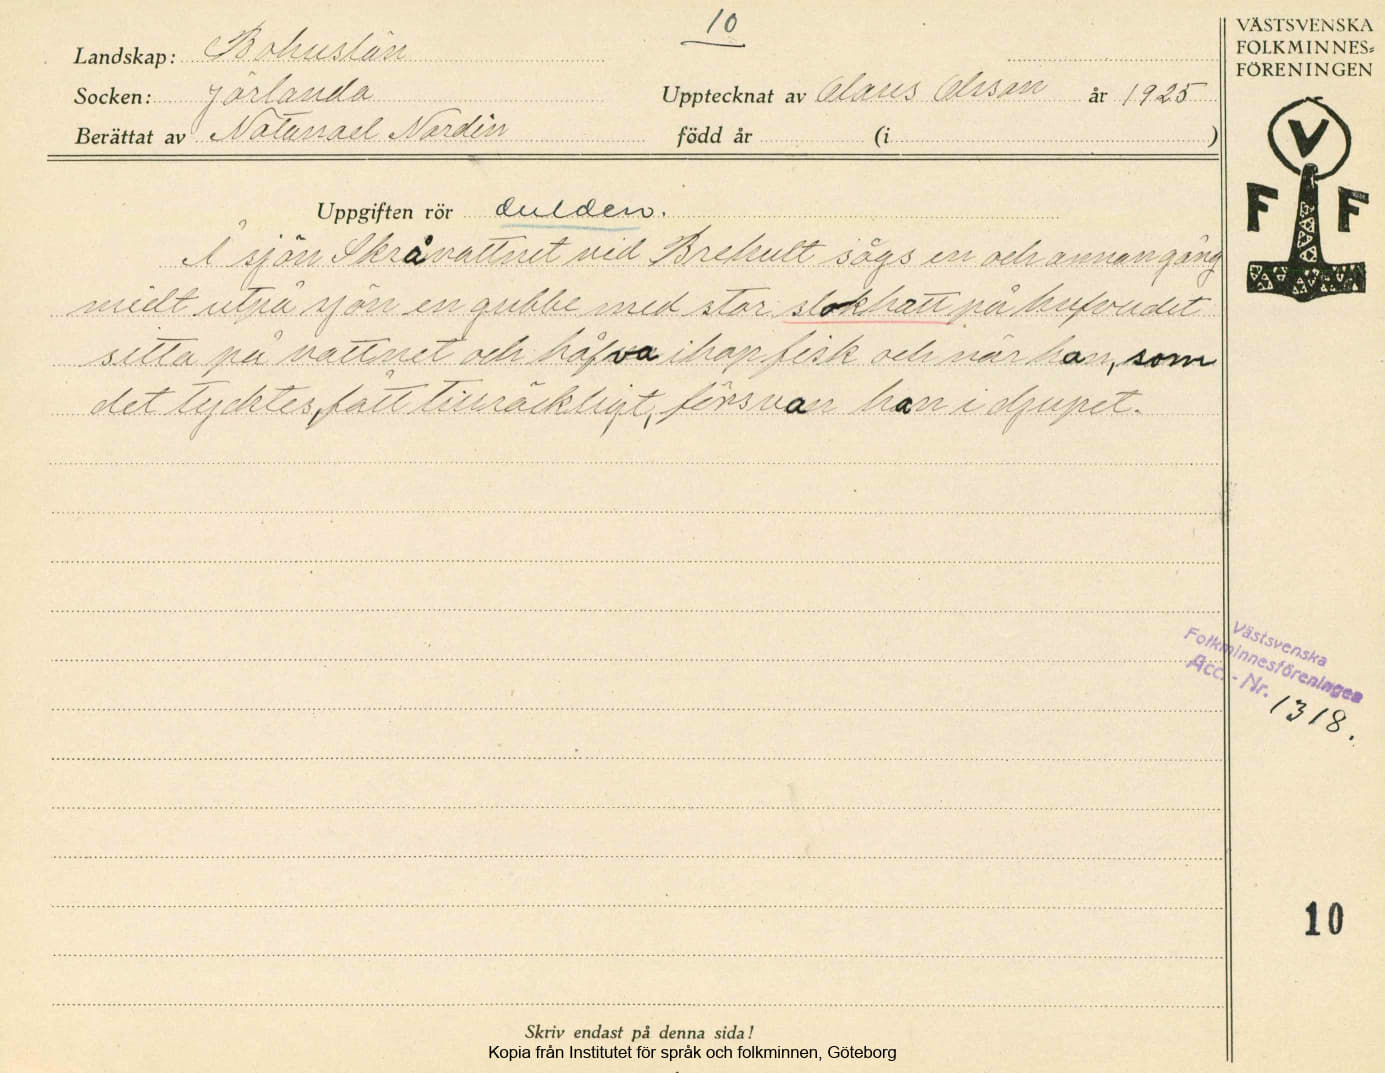 10
VÄSTSVENSKA
FOLKMINNES=
FÖRENINGEN
V
F F
Landskap: Bohuslän
Socken: Jörlanda Upptecknat av Olaus Olsson år 1925
Berättat av Natanael Nordin född år (i )
Uppgiften rör Dulden.
I sjön Skråvattnet vid Brehult sågs en och annan gång
midt utpå sjön en gubbe med stor slokhatt på hufvudet
sitta på vattnet och håfva ihop fisk och när han, som
det tycktes, fått tillräckligt, försvan han i djupet.
Västsvenska
Folkminnesföreningen
Acc. - Nr. 1318.
10
Skriv endast på denna sida!
Kopia från Institutet för språk och folkminnen, Göteborg